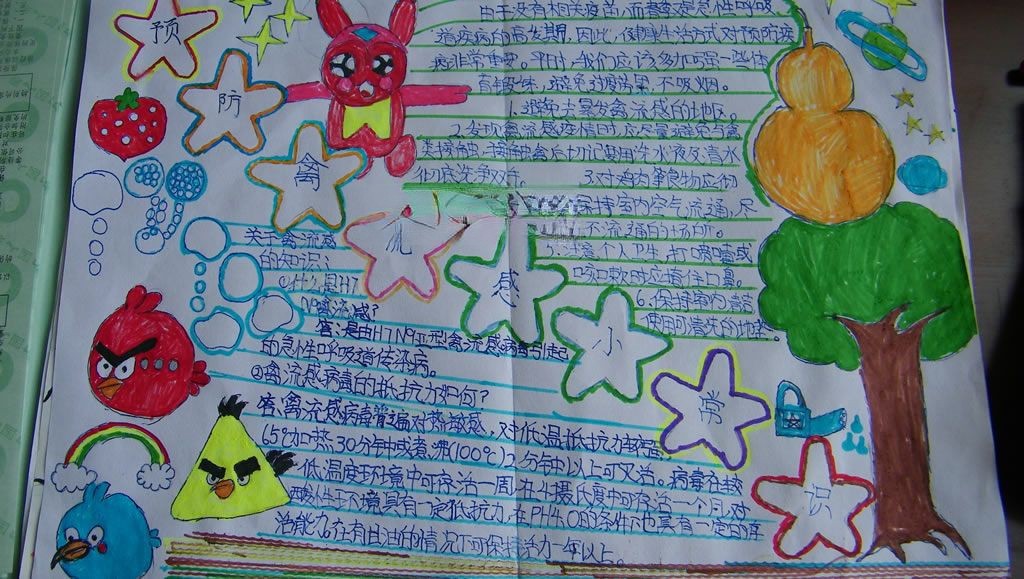 预
防
禽
流
感
小
常
识
由于没有相关疫苗,而春季又是急性呼吸
道疾病的高发期,因此,健康生活方式对预防该
病非常重要。平时,我们应该多加强一些体
育锻炼,避免过度劳累,不吸烟。
1.避免去暴发禽流感的地区。
2.发现禽流感疫情时,应尽量避免与禽
类接触,接触禽后切记要用洗水液及清水
们底洗净双手。 3.对鸡肉等食物应彻
室持室内空气流通,尽
不流通的场所。
个人卫生,打喷嚏或
咳嗽时应掩住口鼻。
6.保持室内清洁
使用可清洗的地表。
关于禽流感
的知识:
①什么是H7
N9禽流感?
答:是由H7N9亚型禽流感病毒引起
的急性呼吸道传染病。
②禽流感病毒的抵抗力如何?
答:禽流感病毒普遍对热敏感,对低温抵抗力较强,
65℃加热30分钟或者煮沸(100℃)2分钟以上可灭活。病毒在较
低温度环境中可存活一周,在4摄氏度中可存活一个月,对
酸性环境具有一定抵抗力,在PH4.0的条件下也具有一定的存
活能力。在有甘油的情况下可保持活力一年以上。